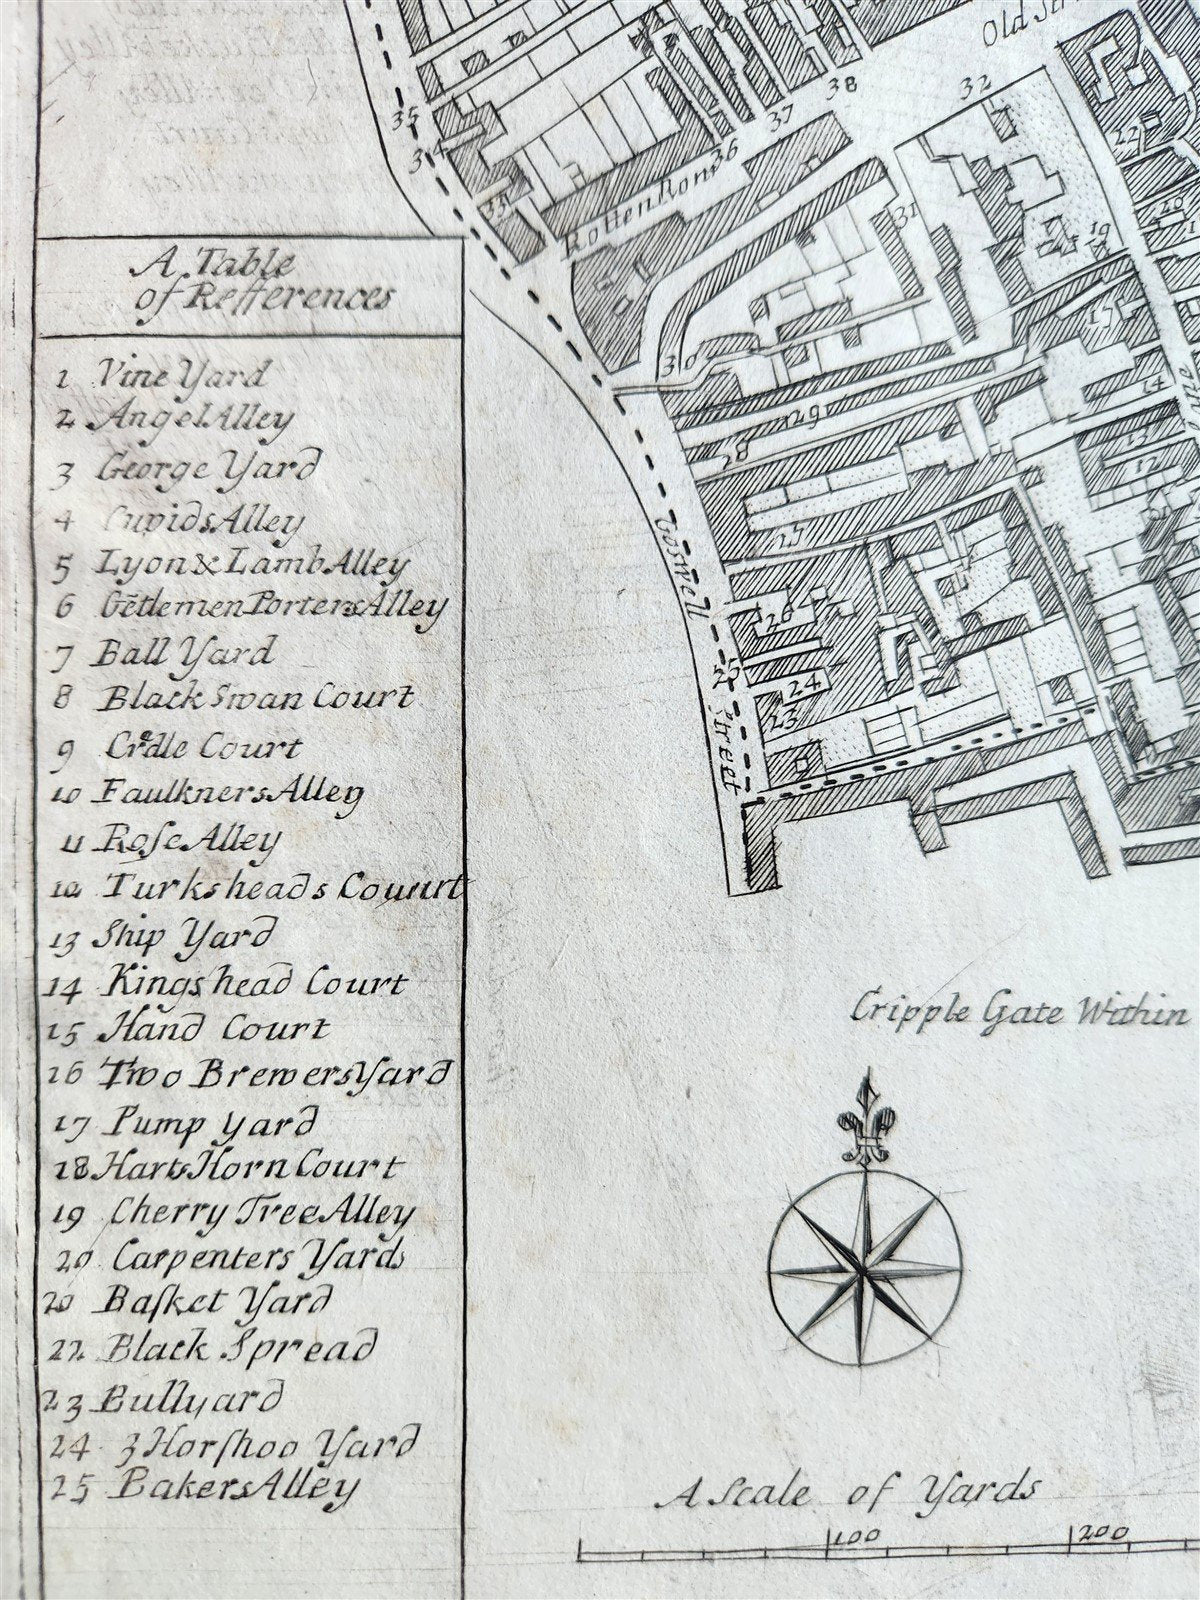 Old Str
32
38
37
36
35
34
33
Rotten Row
31
22
20
19
17
30
29
28
14
13
12
27
Goswell
26
25
24
23
Street
A Table
of Refferences
1 Vine Yard
2 Angel Alley
3 George Yard
4 Cupids Alley
5 Lyon & Lamb Alley
6 Gētlemen Porters Alley
7 Ball Yard
8 Black Swan Court
9 Cradle Court
10 Faulkners Alley
11 Roſe Alley
12 Turksheads Couurt
13 Ship Yard
14 Kings head Court
15 Hand Court
16 Two Brewers Yard
17 Pump yard
18 Harts Horn Court
19 Cherry Tree Alley
20 Carpenters Yards
20 Baſket Yard
22 Black Spread
23 Bullyard
24 3 Horſhoo Yard
25 Bakers Alley
Cripple Gate Within
A Scale of Yards
100 200